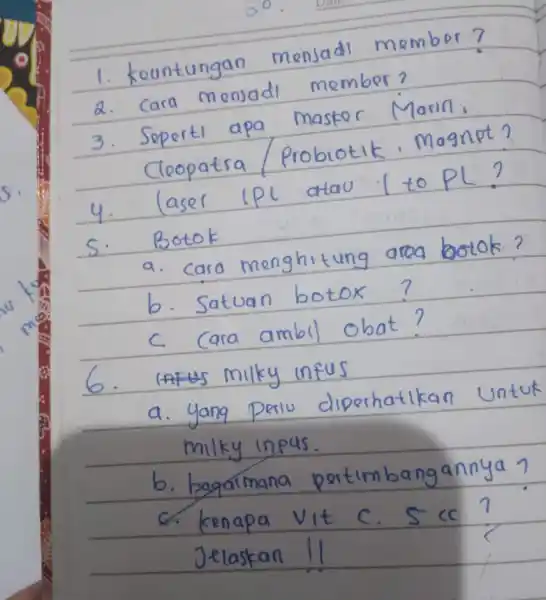 1. keuntungan menjadi member?
2. Cara menjadi member?
3. Seperti apa masker Marin,
Cleopatra / Probiotik, Magnet?
4. laser IPL atau 1 to PL?
5. Botok
a. cara menghitung area botok?
b. Satuan botox ?
c Cara ambil obat?
6. infus milky infus
a. yang perlu diperhatikan Untuk
milky inpus.
b. bagaimana pertimbangannya?
c. kenapa Vit C. 5 cc ?
Jelaskan !!